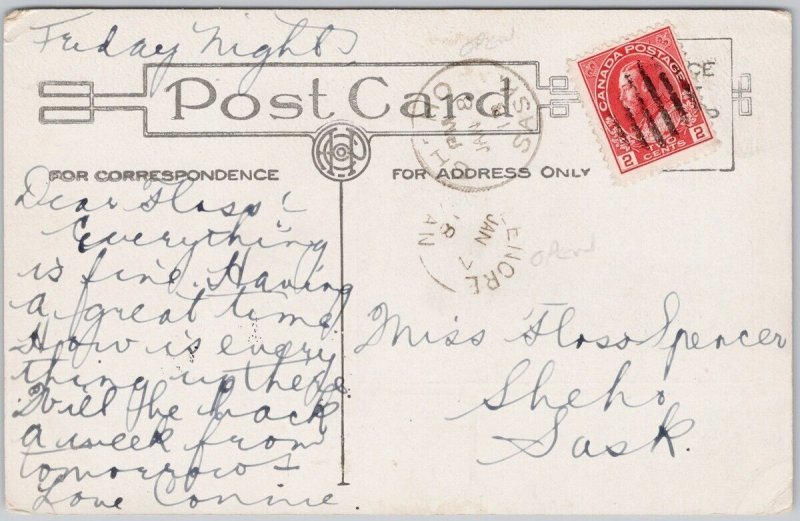 Friday Night
Post Card
FOR CORRESPONDENCE
FOR ADDRESS ONLY
CANADA POSTAGE
2 TWO CENTS 2
SHEHO SASK
JAN 8 18
LENORE
JAN 7 18
MAN
OPEN
OPEN
Dear Floss:
Everything
is fine. Having
a great time.
How is every
thing up there.
Will be back
a week from
tomorrow
Love Connie.
Miss Floss Spencer
Sheho
Sask.